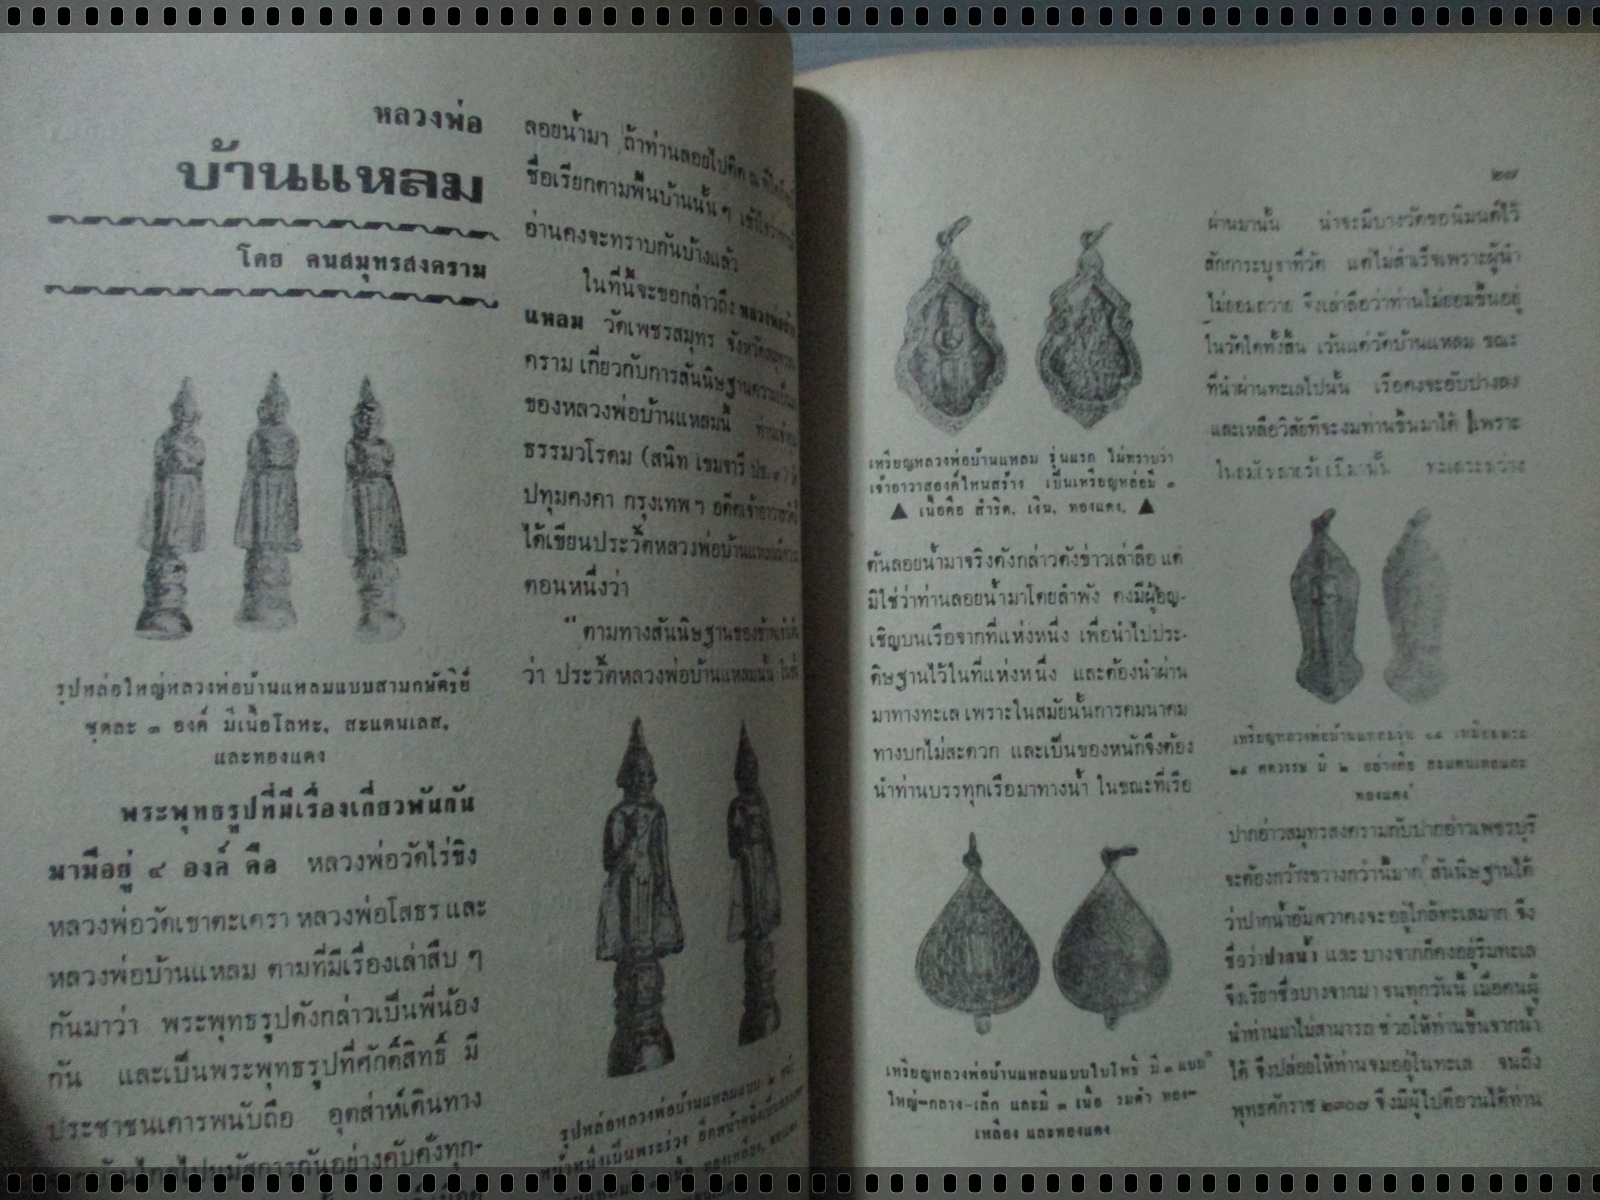 หลวงพ่อ
บ้านแหลม
โดย คนสมุทรสงคราม
รูปหล่อใหญ่หลวงพ่อบ้านแหลมแบบสามกษัตริย์
ชุดละ ๓ องค์ มีเนื้อโลหะ, สะแตนเลส,
และทองแดง
พระพุทธรูปที่มีเรื่องเกี่ยวพันกัน
มามีอยู่ ๔ องค์ คือ หลวงพ่อวัดไร่ขิง
หลวงพ่อวัดเขาตะเครา หลวงพ่อโสธร และ
หลวงพ่อบ้านแหลม ตามที่มีเรื่องเล่าสืบ ๆ
กันมาว่า พระพุทธรูปดังกล่าวเป็นพี่น้อง
กัน และเป็นพระพุทธรูปที่ศักดิ์สิทธิ์ มี
ประชาชนเคารพนับถือ อุตส่าห์เดินทาง
ไปนมัสการกันอย่างคับคั่งทุก-
ลอยน้ำมา ถ้าท่านลอยไปติด ณ
ชื่อเรียกตามพื้นบ้านนั้น ๆ
อ่านคงจะทราบกันบ้างแล้ว
ในที่นี้จะขอกล่าวถึง
แหลม วัดเพชรสมุทร
คราม เกี่ยวกับการสันนิษฐาน
ของหลวงพ่อบ้านแหลมนี้
ธรรมวโรดม (สนิท เขมจารี ปธ. ๙)
ปทุมคงคา กรุงเทพ ฯ
ได้เขียนประวัติหลวงพ่อบ้านแหลม
ตอนหนึ่งว่า
“ตามทางสันนิษฐานของ
ว่า ประวัติหลวงพ่อบ้านแหลมนั้น
รูปหล่อหลวงพ่อบ้านแหลมแบบ ๒ หน้า
๒๗
เหรียญหลวงพ่อบ้านแหลม รุ่นแรก ไม่ทราบว่า
เจ้าอาวาสองค์ไหนสร้าง เป็นเหรียญหล่อมี ๓
▲ เนื้อคือ สำริด, เงิน, ทองแดง, ▲
ต้นลอยน้ำมาจริงดังกล่าวดังข่าวเล่าลือ แต่
มิใช่ว่าท่านลอยน้ำมาโดยลำพัง คงมีผู้อัญ-
เชิญบนเรือจากที่แห่งหนึ่ง เพื่อนำไปประ-
ดิษฐานไว้ในที่แห่งหนึ่ง และต้องนำผ่าน
มาทางทะเล เพราะในสมัยนั้นการคมนาคม
ทางบกไม่สะดวก และเป็นของหนักจึงต้อง
นำท่านบรรทุกเรือมาทางน้ำ ในขณะที่เรือ
เหรียญหลวงพ่อบ้านแหลมแบบใบโพธิ์ มี ๓ แบบ
ใหญ่-กลาง-เล็ก และมี ๓ เนื้อ รมดำ ทอง-
เหลือง และทองแดง
ผ่านมานั้น น่าจะมีบางวัดขอนิมนต์ไว้
สักการะบูชาที่วัด แต่ไม่สำเร็จเพราะผู้นำ
ไม่ยอมถวาย จึงเล่าลือว่าท่านไม่ยอมขึ้นอยู่
ในวัดใดทั้งสิ้น เว้นแต่วัดบ้านแหลม ขณะ
ที่นำผ่านทะเลไปนั้น เรือคงจะอับปางลง
และเหลือวิสัยที่จะงมท่านขึ้นมาได้ เพราะ
เหรียญหลวงพ่อบ้านแหลมรุ่น
๒๕ ศตวรรษ มี ๒ อย่างคือ สะแตนเลสและ
ทองแดง
ปากอ่าวสมุทรสงครามกับปากอ่าวเพชรบุรี
จะต้องกว้างขวางกว่านี้มาก สันนิษฐานได้
ว่าปากน้ำอัมพวาคงจะอยู่ใกล้ทะเลมาก จึง
ชื่อว่าปากน้ำ และ บางจากก็คงอยู่ริมทะเล
จึงเรียกชื่อบางจากมา จนทุกวันนี้ เมื่อคนผู้
นำท่านมาไม่สามารถ ช่วยให้ท่านขึ้นจากน้ำ
ได้ จึงปล่อยให้ท่านจมอยู่ในทะเล จนถึง
พุทธศักราช ๒๓๐๗ จึงมีผู้ไปตีอวนได้ท่าน